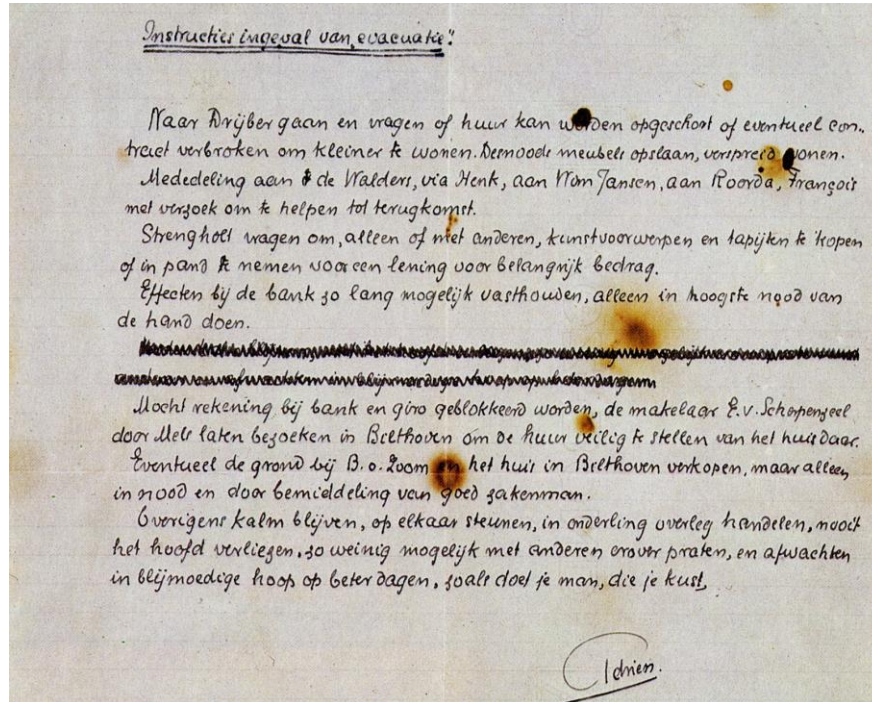 Instructies ingeval van „evacuatie".
Naar Drijber gaan en vragen of huur kan worden opgeschort of eventueel con-
tract verbroken om kleiner te wonen. Desnoods meubels opslaan, verspreid wonen.
Mededeling aan de Walders, via Henk, aan Wim Jansen, aan Roorda, François
met verzoek om te helpen tot terugkomst.
Strengholt vragen om, alleen of met anderen, kunstvoorwerpen en tapijten te kopen
of in pand te nemen voor een lening voor belangrijk bedrag.
Effecten bij de bank zo lang mogelijk vasthouden, alleen in hoogste nood van
de hand doen.
Mocht rekening bij bank en giro geblokkeerd worden, de makelaar E.v. Scherpenzeel
door Mels laten bezoeken in Bilthoven om de huur veilig te stellen van het huis daar.
Eventueel de grond bij B.o. Zoom en het huis in Bilthoven verkopen, maar alleen
in nood en door bemiddeling van goed zakenman.
Overigens kalm blijven, op elkaar steunen, in onderling overleg handelen, nooit
het hoofd verliezen, zo weinig mogelijk met anderen erover praten, en afwachten
in blijmoedige hoop op beter dagen, zoals doet je man, die je kust,
Adrien.